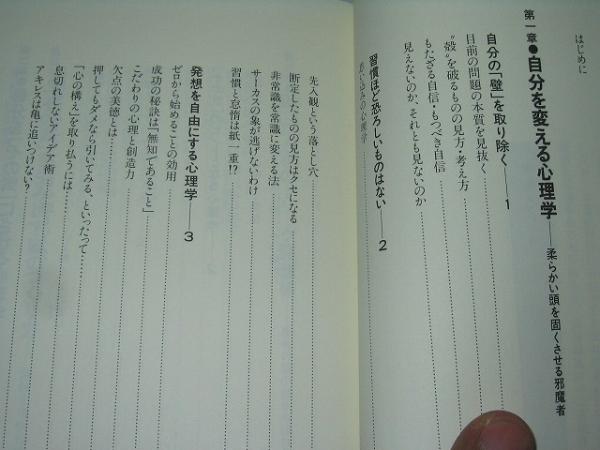 はじめに
第一章●自分を変える心理学――柔らかい頭を固くさせる邪魔者
自分の「壁」を取り除く――1
目前の問題の本質を見抜く
“殻”を破るものの見方・考え方
もたざる自信・もつべき自信
見えないのか、それとも見ないのか
習慣ほど恐ろしいものはない――2
思い込みの心理学
先入観という落とし穴
断定したものの見方はクセになる
非常識を常識に変える法
サーカスの象が逃げないわけ
習慣と怠惰は紙一重!?
発想を自由にする心理学――3
ゼロから始めることの効用
成功の秘訣は「無知であること」
こだわりの心理と創造力
欠点の美徳とは
押してもダメなら引いてみる、といったって……
「心の構え」を取り払うには……
息切れしないアイデア術
アキレスは亀に追いつけない?